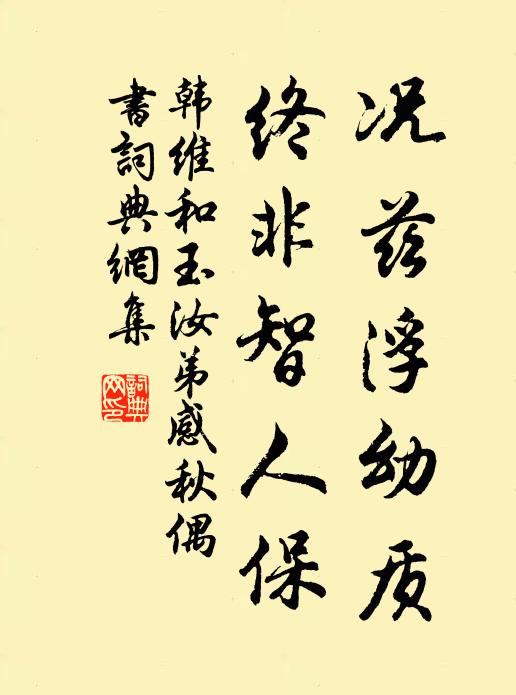 况兹浮幼质
终非智人保
韩维和玉汝弟感秋偶
書詞典網集
詞典
网印